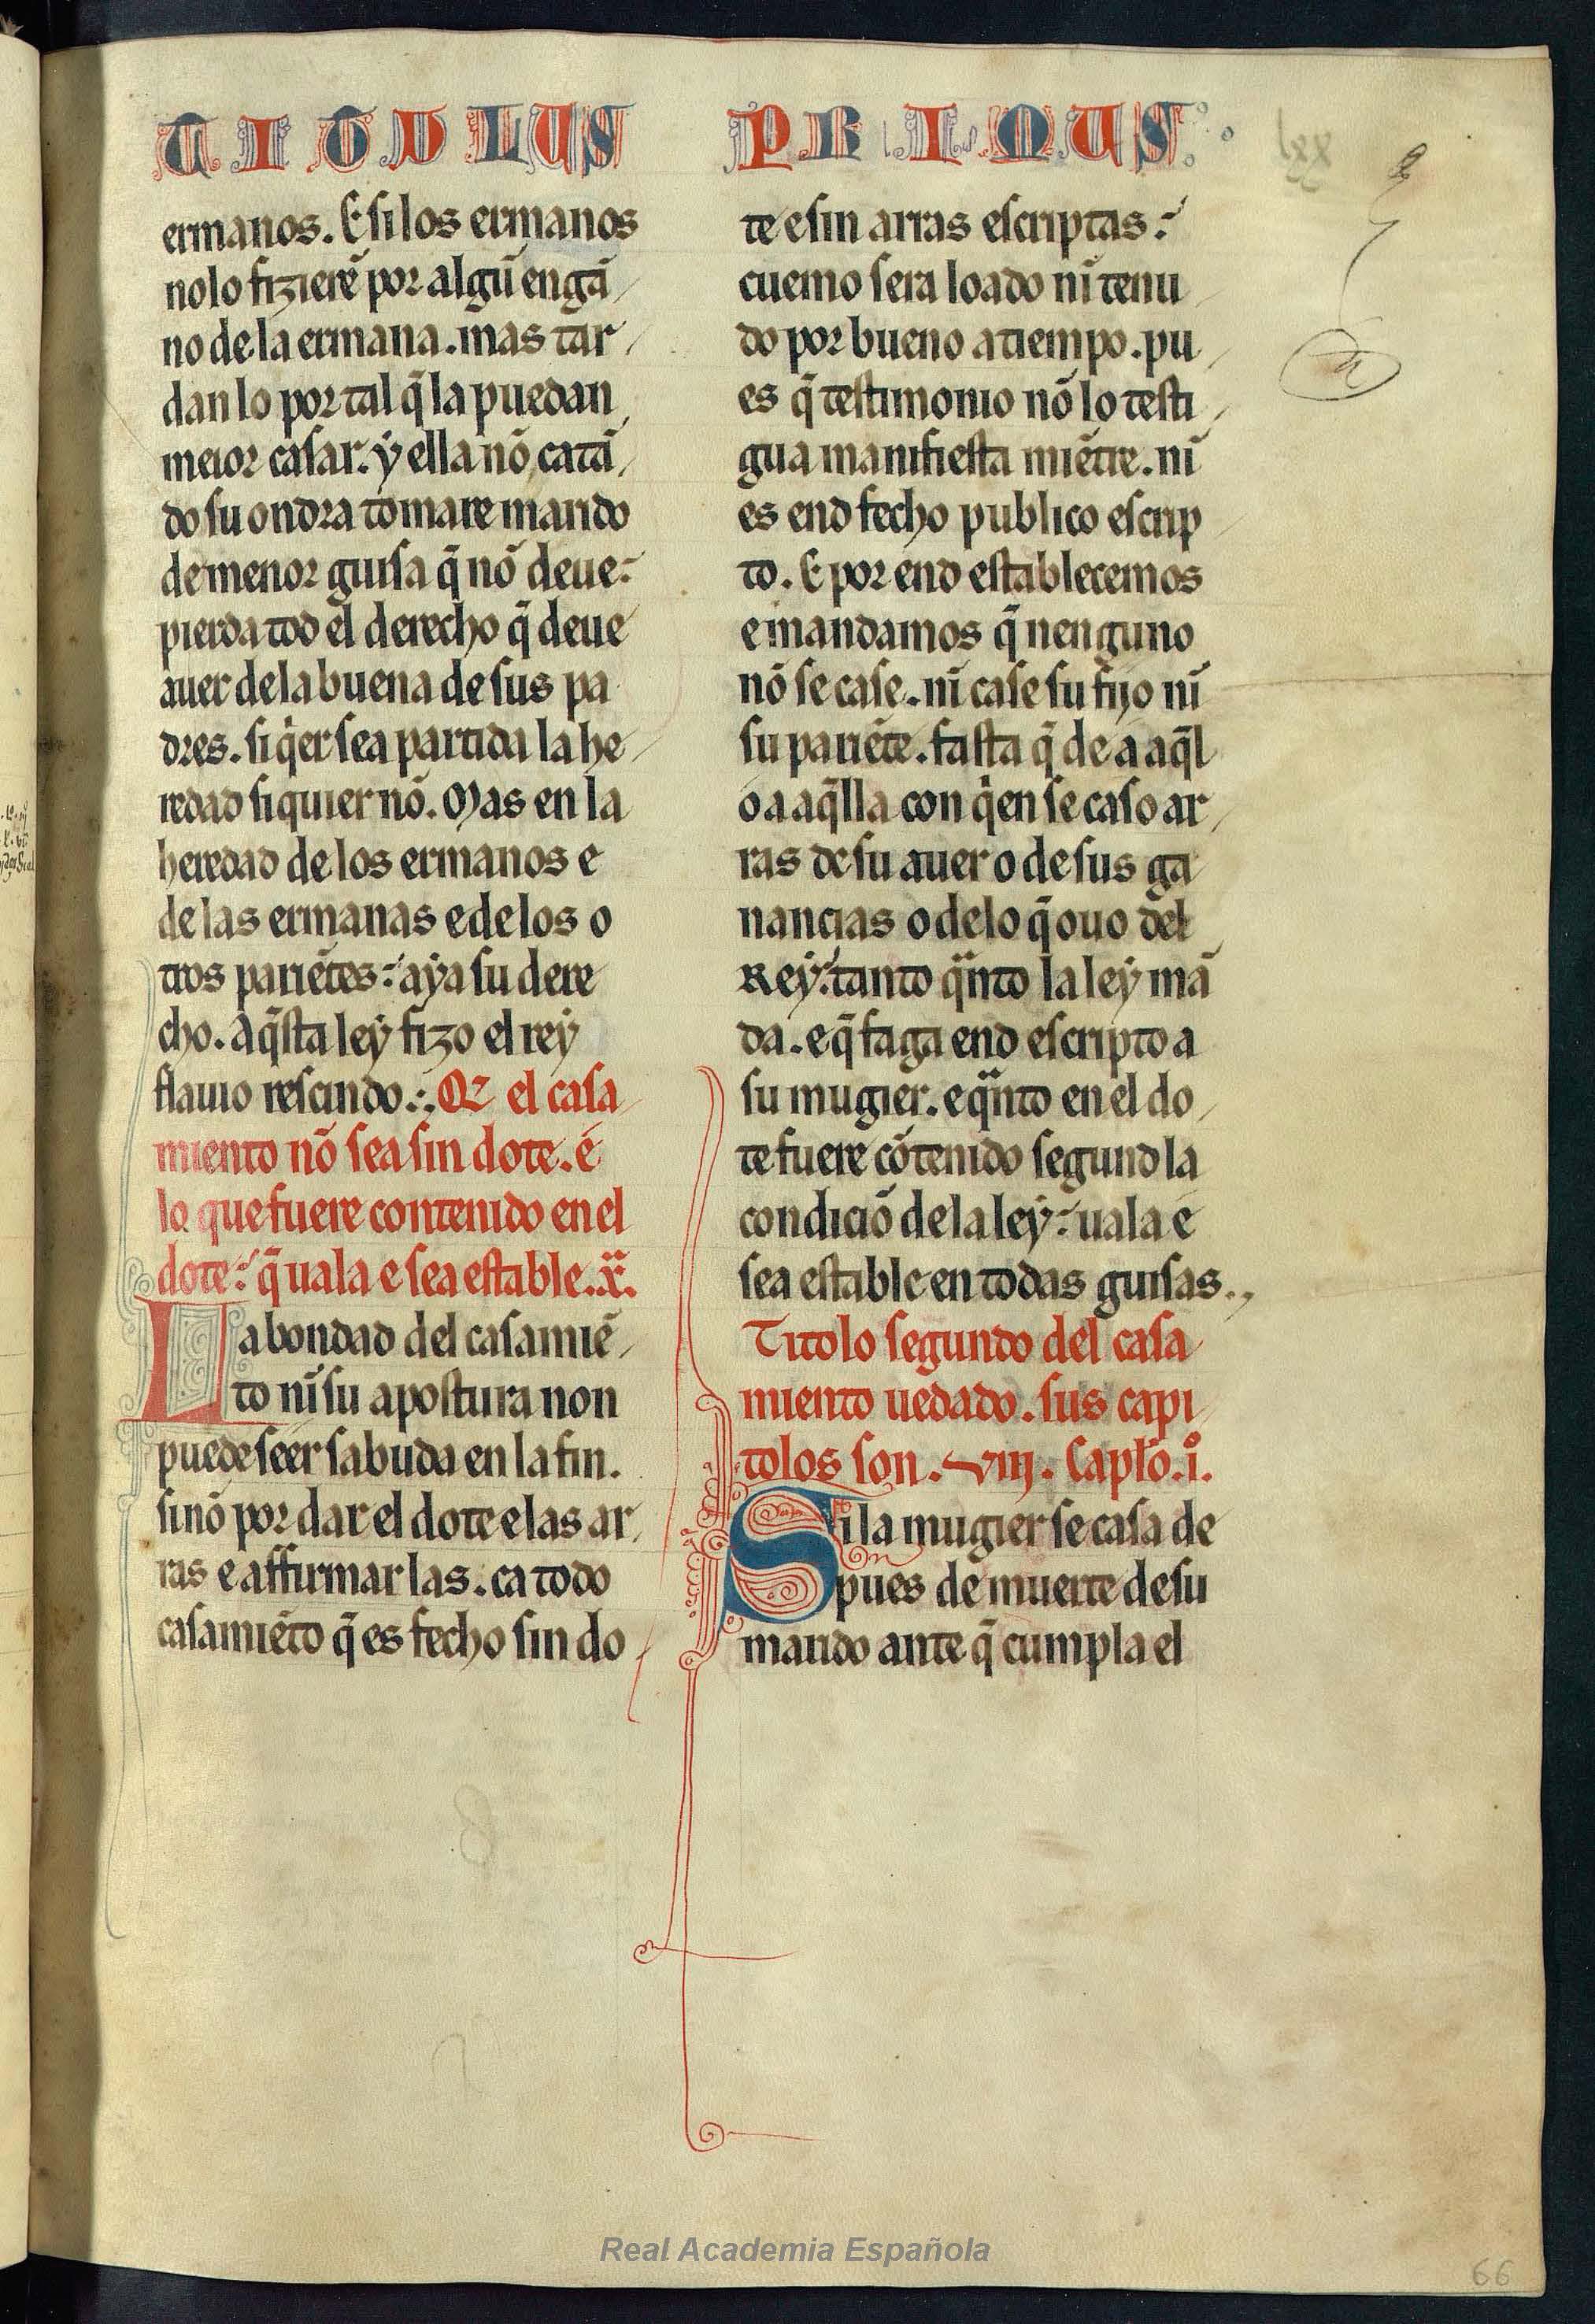 TITULUS PRIMUS
lxx
ermanos. E si los ermanos
no lo fizierẽ por algũ engã
no de la ermana. mas tar
dan lo por tal q̃ la puedan
meior casar. ẏ ella nõ catã
do su ondra tomare marido
de menor guisa q̃ nõ deue:
pierda tod el derecho q̃ deue
auer de la buena de sus pa
dres. si q̉er sea partida la he
redad si quier nõ. Mas en la
heredad de los ermanos e
de las ermanas e de los o
tros pariẽtes: aẏa su dere
cho. Aq̃sta leẏ fizo el reẏ
flauio rescindo. Q̃ el casa
miento nõ sea sin dote. é
lo que fuere contenido en el
dote: q̃ uala e sea estable. x̃.
La bondad del casamiẽ
to nĩ su apostura non
puede seer sabuda en la fin.
sinõ por dar el dote e las ar
ras e affirmar las. ca todo
casamiẽto q̃ es fecho sin do
te e sin arras escriptas:
cuemo sera loado nĩ tenu
do por bueno a tiempo. pu
es q̃ testimonio nõ lo testi
gua manifiesta miẽtre. nĩ
es end fecho publico escrip
to. E por end establecemos
e mandamos q̃ nenguno
nõ se case. nĩ case su fijo nĩ
su pariẽte. fasta q̃ de a aq̃l
o a aq̃lla con q̉en se caso ar
ras de su auer o de sus ga
nancias o de lo q̃ ouo del
Reẏ: tanto q̃nto la leẏ mã
da. e q̃ faga end escripto a
su mugier. e q̃nto en el do
te fuere cõtenido segund la
condiciõ de la leẏ: uala e
sea estable en todas guisas.,
Titolo segundo del casa
miento uedado. sus capi
tolos son. viij. Capl̃o. i̊.
Si la mugier se casa de
spues de muerte de su
marido ante q̃ cumpla el
Real Academia Española
66